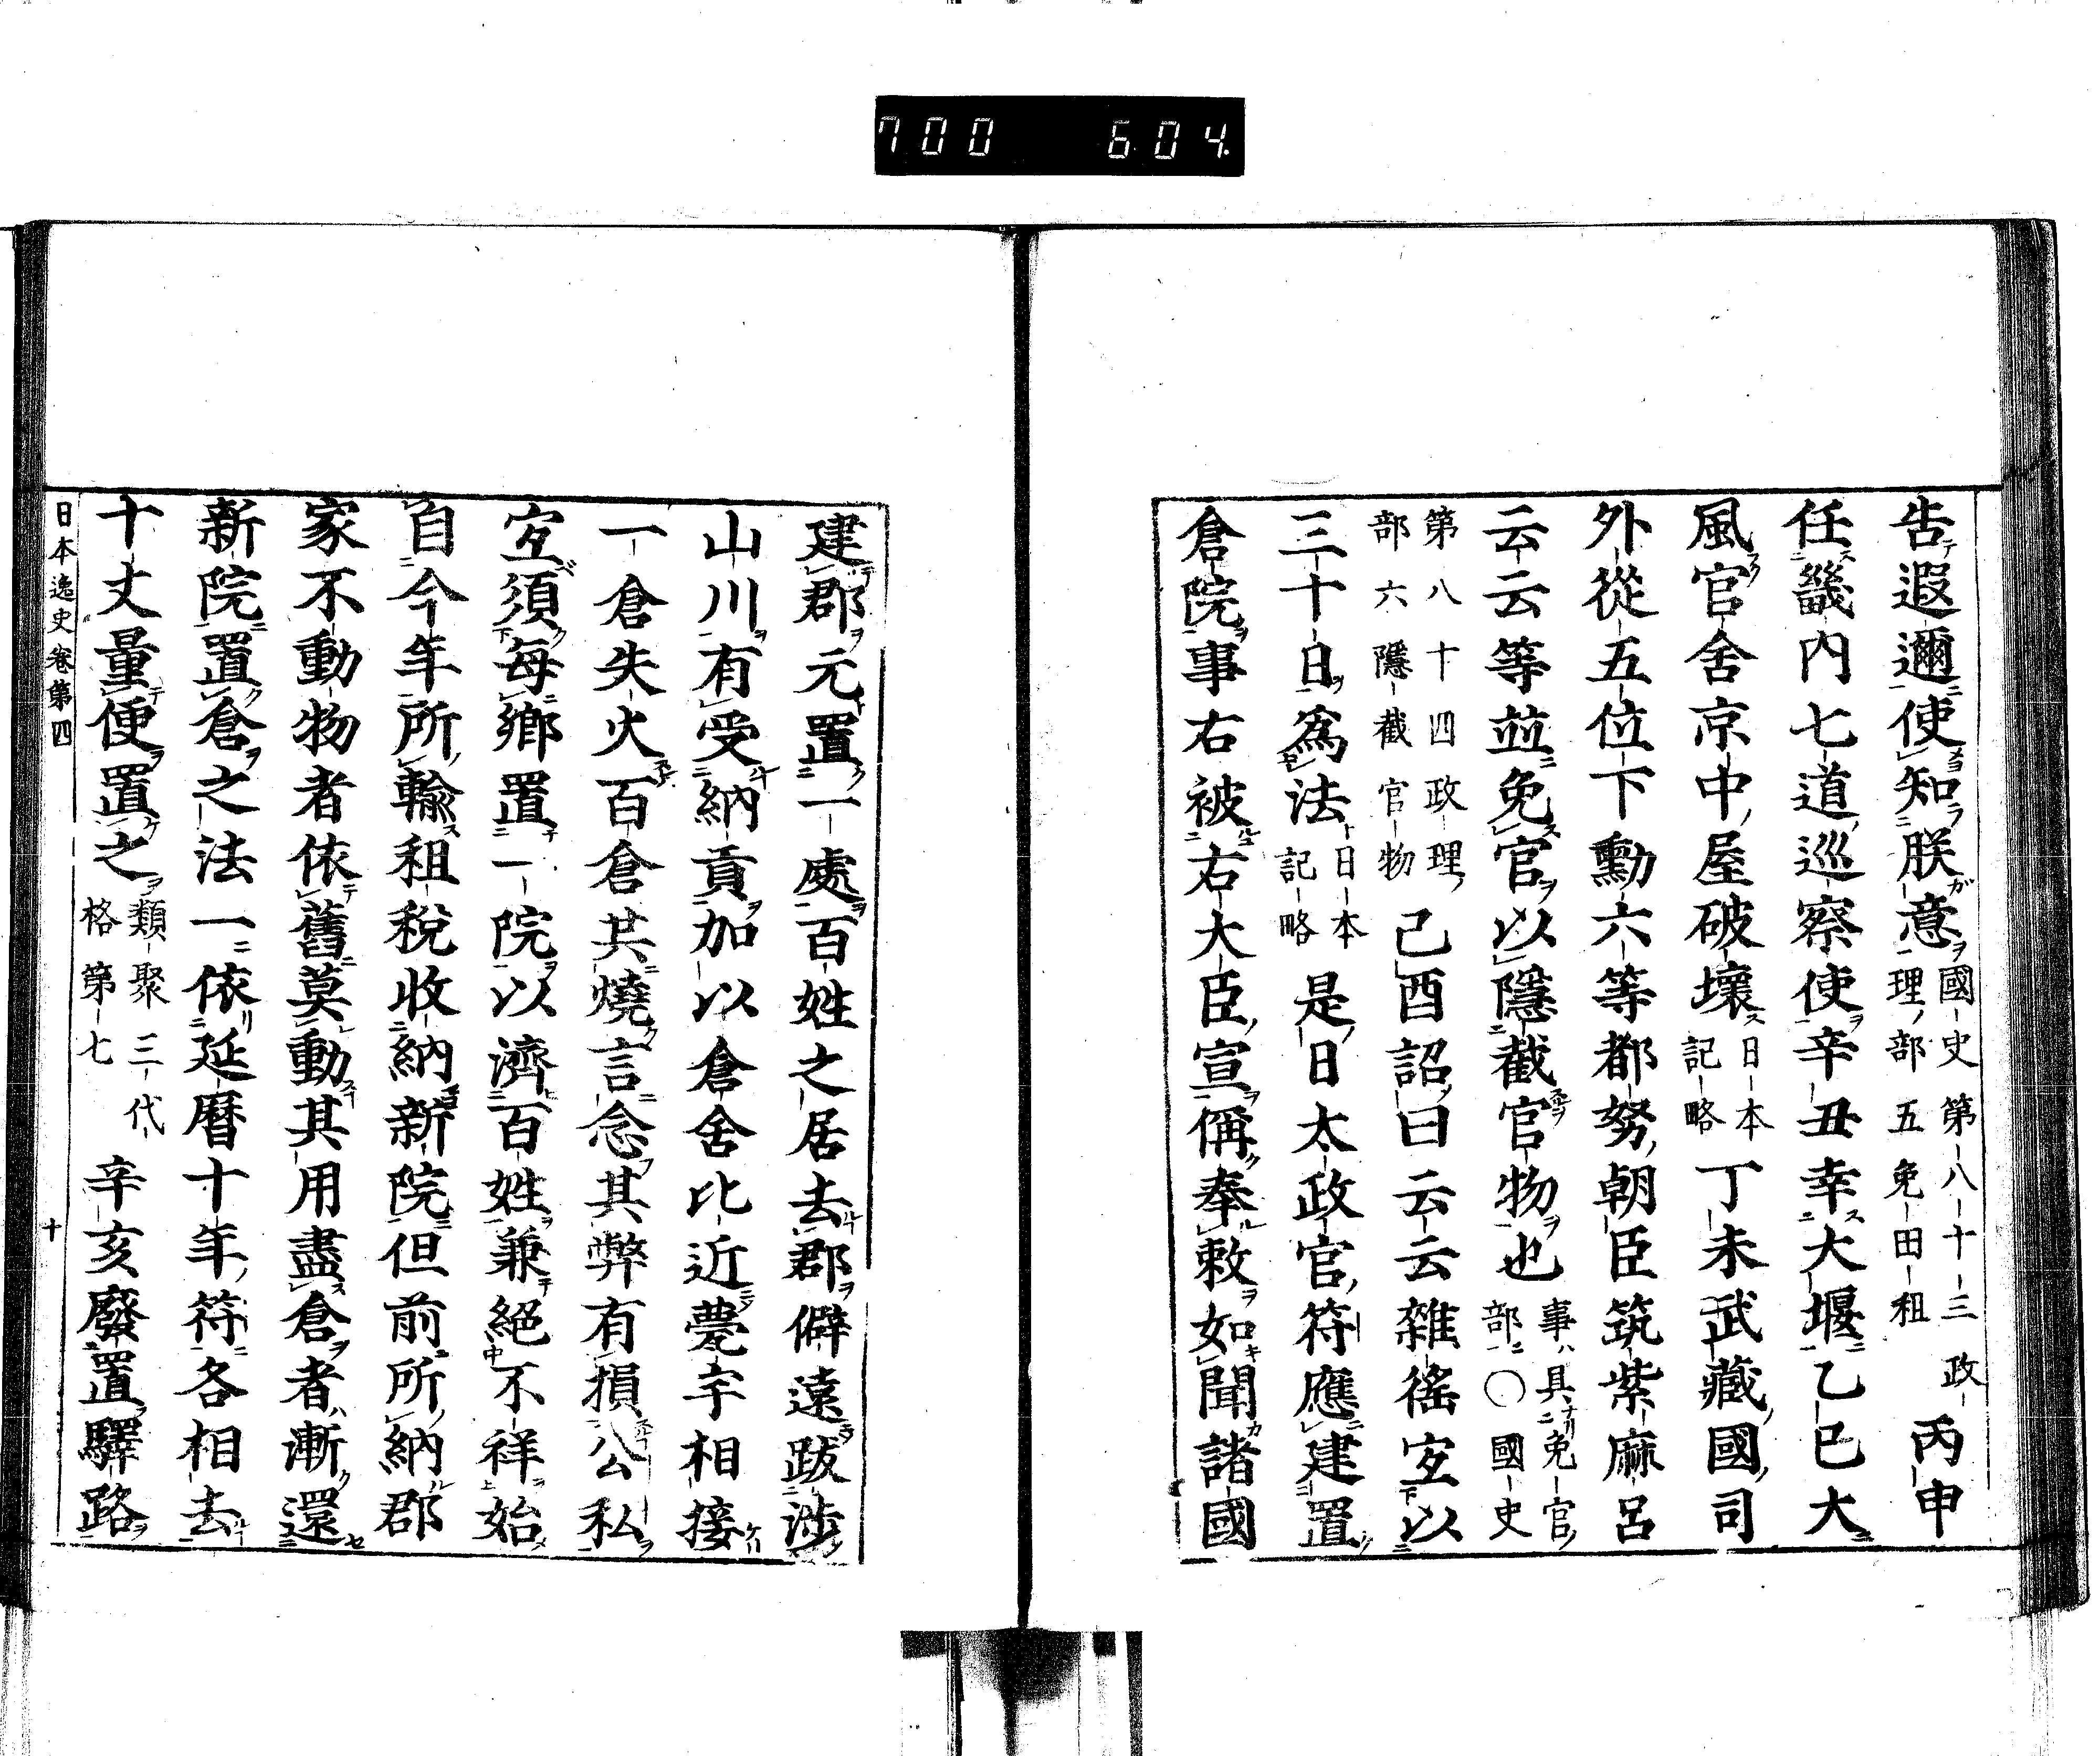 700 604
告遐邇使知朕意國史第八十三政理部五免田租丙申
任畿内七道巡察使辛丑幸大堰乙巳大
風官舍京中屋破壞日本記略丁未武藏國司
外從五位下勳六等都努朝臣筑紫麻呂
云云等並免官以隱截官物也事具免官部〇國史
第八十四政理部六隱截官物己酉詔曰云云雜徭宜以
三十日爲法日本記略是日太政官符應建置
倉院事右被右大臣宣偁奉敕如聞諸國
建郡元置一處百姓之居去郡僻遠跋涉
山川有受納貢加以倉舍比近甍宇相接
一倉失火百倉共燒言念其弊有損公私
宜須每鄉置一院以濟百姓兼絕不祥始
自今年所輸租稅收納新院但前所納郡
家不動物者依舊莫動其用盡倉者漸還
新院置倉之法一依延曆十年符各相去
十丈量便置之類聚三代格第七辛亥廢置驛路
日本逸史卷第四 十